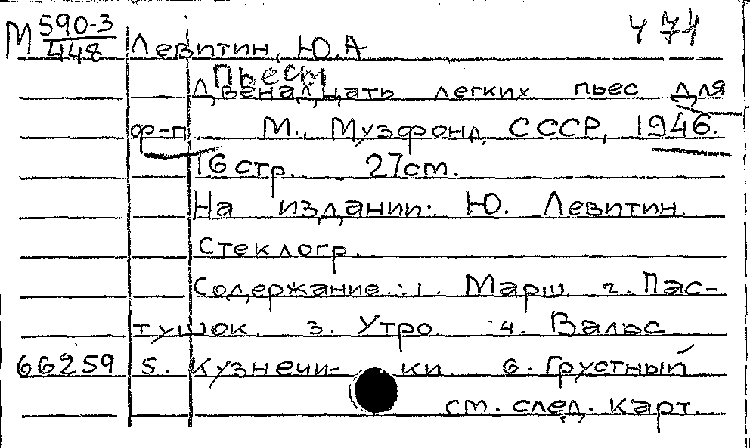 М 590-3
448 Левитин, Ю.А
Пьесы
Двенадцать легких пьес для
ф-п М., Музфонд СССР, 1946.
16 стр. 27 см.
На издании: Ю. Левитин.
Стеклогр.
Содержание: 1. Марш. 2. Пас-
тушок. 3. Утро. 4. Вальс
66259 5. Кузнечи- ки. 6. Грустный
см. след. карт.